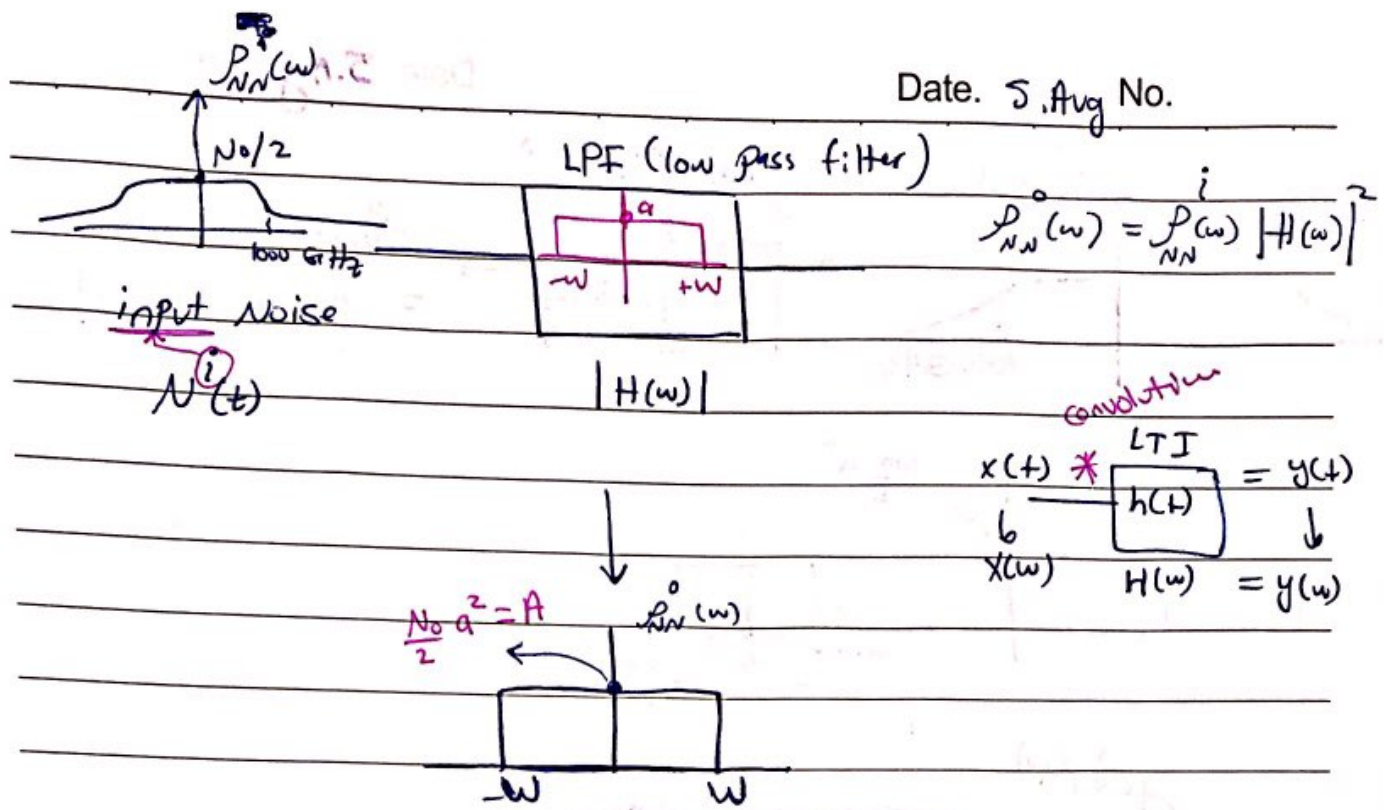 𝒫ᵢ_NN(ω)
Date. 5.Aug No.
N₀/2
LPF (low pass filter)
a
-W +W
1000 GHz
𝒫°_NN(ω) = 𝒫ⁱ_NN(ω) |H(ω)|²
input Noise
Nⁱ(t)
|H(ω)|
convolution
LTI
x(t) * h(t) = y(t)
X(ω) H(ω) = y(ω)
N₀/2 a² = A
𝒫°_NN(ω)
-W W